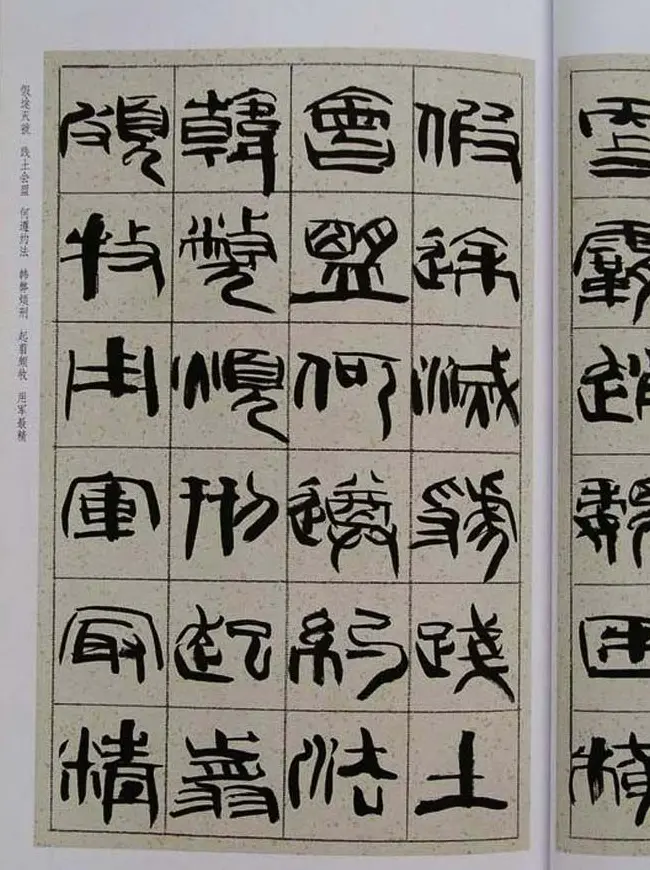 霸趙魏困橫
假途滅虢踐土
會盟何遵約法
韓弊煩刑起翦
頗牧用軍最精
假途灭虢 践土会盟 何遵约法 韩弊烦刑 起翦颇牧 用军最精